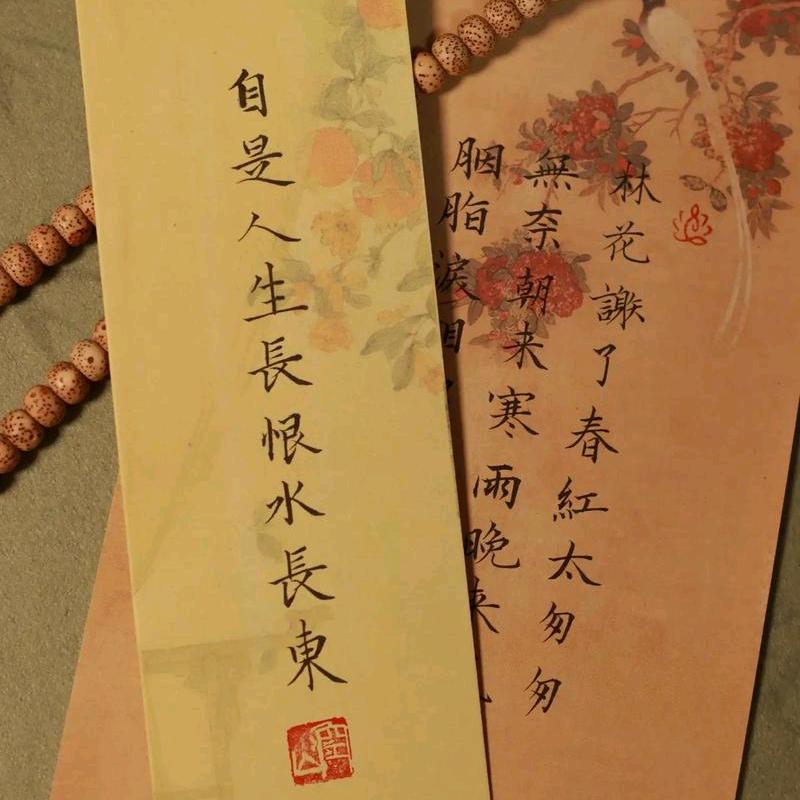 林花謝了春紅太匆匆
無奈朝来寒雨晚来
胭脂淚
自是人生長恨水長東